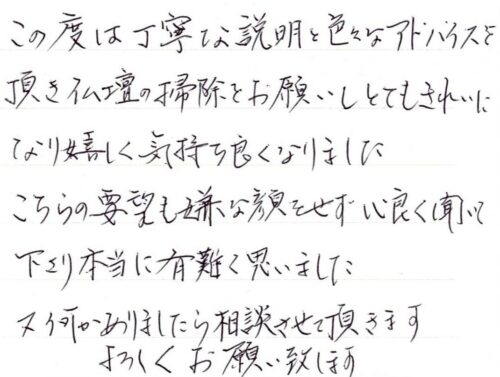 この度は丁寧な説明と色々なアドバイスを
頂き仏壇の掃除をお願いしとてもきれいに
なり嬉しく気持ち良くなりました
こちらの要望も嫌な顔をせず心良く聞いて
下さり本当に有難く思いました
又何かありましたら相談させて頂きます
よろしくお願い致します